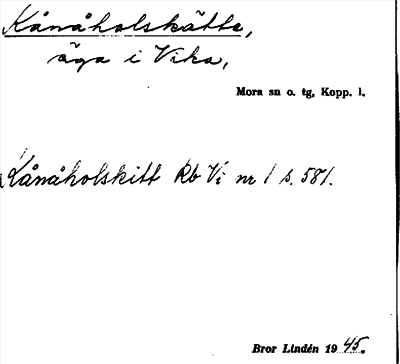 Kånåholskätte,
äga i Vika,
Mora sn o. tg, Kopp. l.
Kånåholskitt Rb Vi nr 1 s. 581.
Bror Lindén 1945.